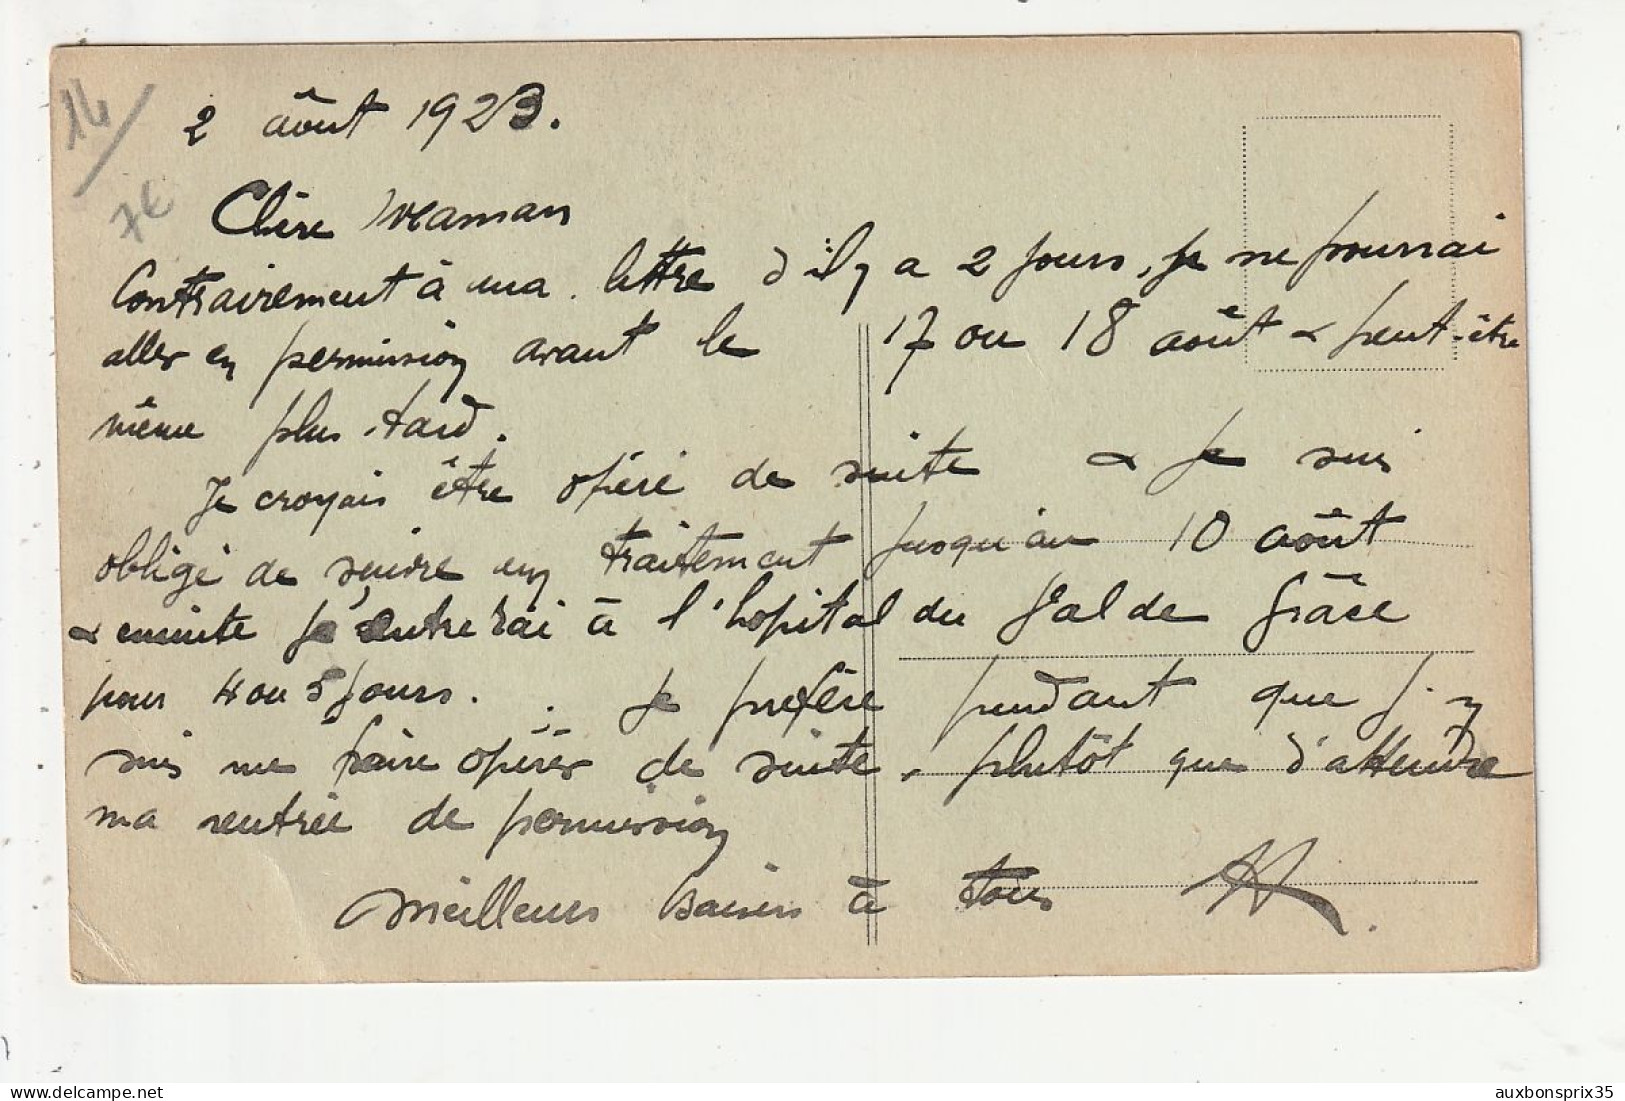 14/
7€
2 août 1923.
Chère Maman
Contrairement à ma lettre d'il y a 2 jours, je ne pourrai
aller en permission avant le 17 ou 18 août & peut-être
même plus tard.
Je croyais être opéré de suite & je suis
obligé de suivre un traitement jusqu'au 10 août
& ensuite j'entrerai à l'hopital du Val de Grâce
pour 4 ou 5 jours. Je préfère pendant que j'y
suis me faire opérer de suite, plutôt que d'attendre
ma rentrée de permission
Meilleurs baisers à tous
auxbonsprix35